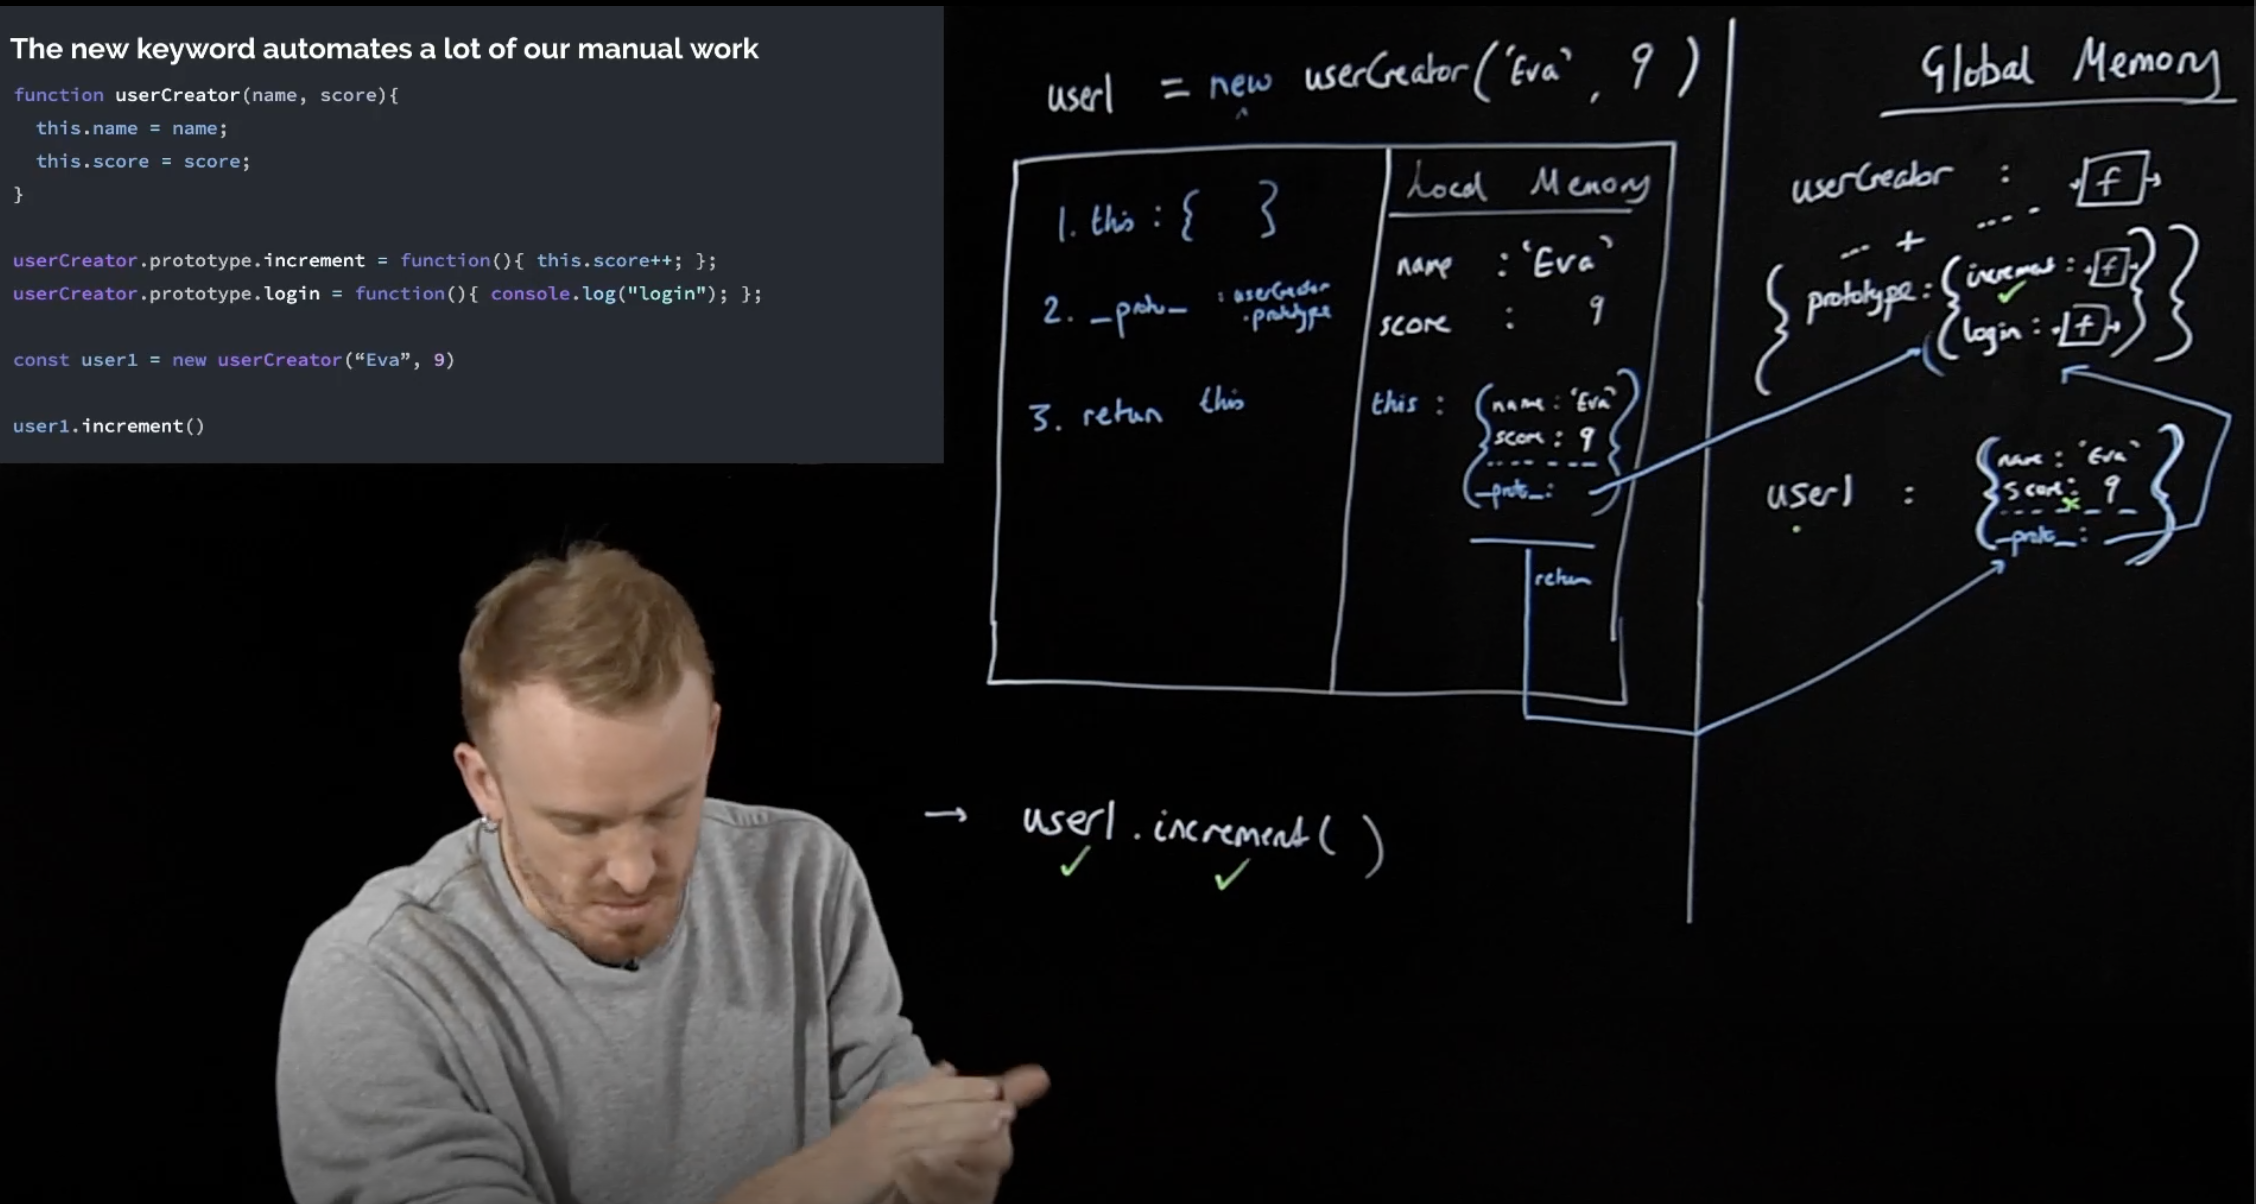 The new keyword automates a lot of our manual work
function userCreator(name, score){
this.name = name;
this.score = score;
}
userCreator.prototype.increment = function(){ this.score++; };
userCreator.prototype.login = function(){ console.log("login"); };
const user1 = new userCreator(“Eva”, 9)
user1.increment()
user1 = new userCreator('Eva', 9)
1. this : { }
2. __proto__ : userCreator
.prototype
3. return this
Local Memory
name : 'Eva'
score : 9
this : { name : 'Eva'
score : 9
__proto__ : }
return
→ user1.increment()
✓ ✓
Global Memory
userCreator : f
+
{ prototype : { increment : f
✓
login : f } }
user1 : { name : 'Eva'
score : 9
__proto__ : }